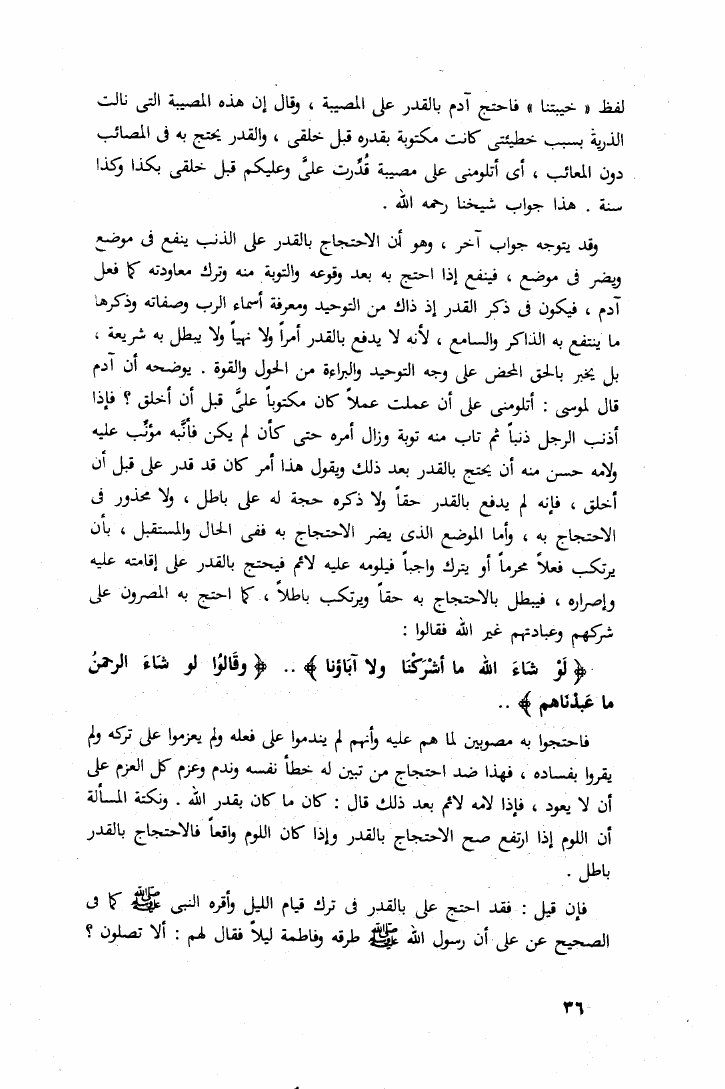 لفظ « خيبتنا » فاحتج آدم بالقدر على المصيبة ، وقال إن هذه المصيبة التى نالت
الذرية بسبب خطيئتى كانت مكتوبة بقدره قبل خلقى ، والقدر يحتج به فى المصائب
دون المعائب ، أى أتلومنى على مصيبة قُدِّرت علىَّ وعليكم قبل خلقى بكذا وكذا
سنة . هذا جواب شيخنا رحمه الله .
وقد يتوجه جواب آخر ، وهو أن الاحتجاج بالقدر على الذنب ينفع فى موضع
ويضر فى موضع ، فينفع إذا احتج به بعد وقوعه والتوبة منه وترك معاودته كما فعل
آدم ، فيكون فى ذكر القدر إذ ذاك من التوحيد ومعرفة أسماء الرب وصفاته وذكرها
ما ينتفع به الذاكر والسامع ، لأنه لا يدفع بالقدر أمراً ولا نهياً ولا يبطل به شريعة ،
بل يخبر بالحق المحض على وجه التوحيد والبراءة من الحول والقوة . يوضحه أن آدم
قال لموسى : أتلومنى على أن عملت عملاً كان مكتوباً علىَّ قبل أن أخلق ؟ فإذا
أذنب الرجل ذنباً ثم تاب منه توبة وزال أمره حتى كأن لم يكن فأنَّبه مؤنِّب عليه
ولامه حسن منه أن يحتج بالقدر بعد ذلك ويقول هذا أمر كان قد قدر على قبل أن
أخلق ، فإنه لم يدفع بالقدر حقاً ولا ذكره حجة له على باطل ، ولا محذور فى
الاحتجاج به ، وأما الموضع الذى يضر الاحتجاج به ففى الحال والمستقبل ، بأن
يرتكب فعلاً محرماً أو يترك واجباً فيلومه عليه لائم فيحتج بالقدر على إقامته عليه
وإصراره ، فيبطل بالاحتجاج به حقاً ويرتكب باطلاً ، كما احتج به المصرون على
شركهم وعبادتهم غير الله فقالوا :
﴿ لَوْ شَاءَ الله ما أشْرَكْنَا ولا آبَاؤنا ﴾ .. ﴿ وقَالُوا لو شَاءَ الرحمنُ
ما عَبدْنَاهم ﴾ ..
فاحتجوا به مصوبين لما هم عليه وأنهم لم يندموا على فعله ولم يعزموا على تركه ولم
يقروا بفساده ، فهذا ضد احتجاج من تبين له خطأ نفسه وندم وعزم كل العزم على
أن لا يعود ، فإذا لامه لائم بعد ذلك قال : كان ما كان بقدر الله . ونكتة المسألة
أن اللوم إذا ارتفع صح الاحتجاج بالقدر وإذا كان اللوم واقعاً فالاحتجاج بالقدر
باطل .
فإن قيل : فقد احتج على بالقدر فى ترك قيام الليل وأقره النبى ﷺ كما فى
الصحيح عن على أن رسول الله ﷺ طرقه وفاطمة ليلاً فقال لهم : ألا تصلون ؟
٣٦